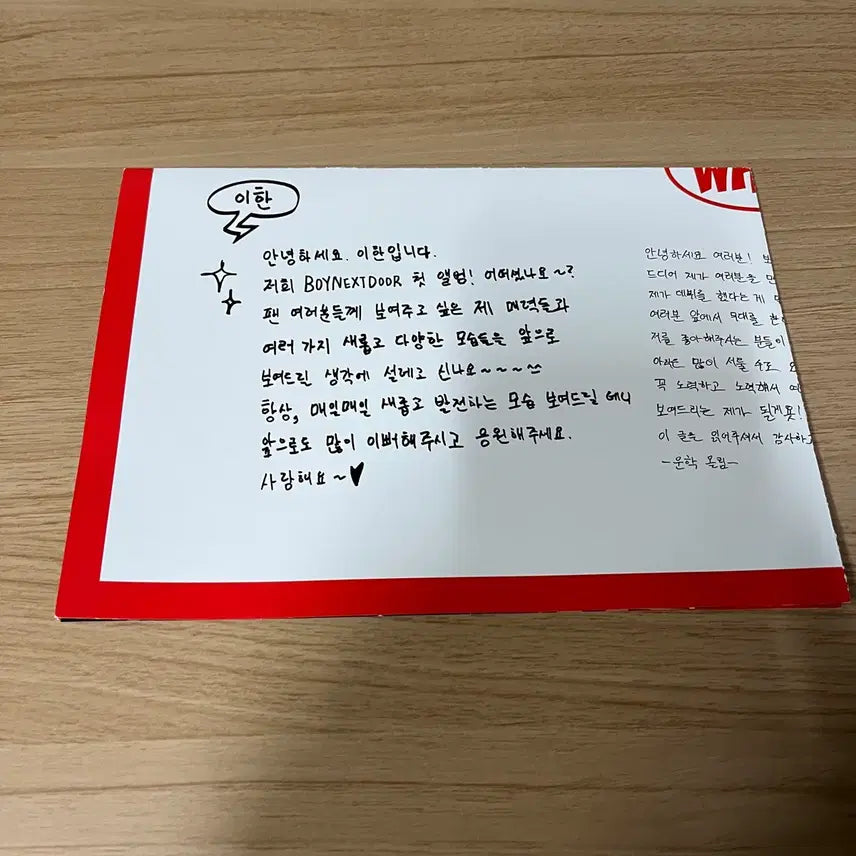 이한
안녕하세요. 이한입니다.
저희 BOYNEXTDOOR 첫 앨범! 어떠셨나요~?
팬 여러분들께 보여주고 싶은 제 매력들과
여러 가지 새롭고 다양한 모습들을 앞으로
보여드릴 생각에 설레고 신나요~~~~
항상, 매일매일 새롭고 발전하는 모습 보여드릴 테니
앞으로도 많이 이뻐해주시고 응원해주세요.
사랑해요~♥
WH
안녕하세요 여러분!
드디어 제가 여러분을 만
제가 데뷔를 했다는게
여러분 앞에서 무대를 한
저를 좋아해주시는 분들이
아직은 많이 서툴 수도
꼭 노력하고 노력해서
보여드리는 제가 될게요!
이 글을 읽어주셔서 감사하고
-운학 올림-